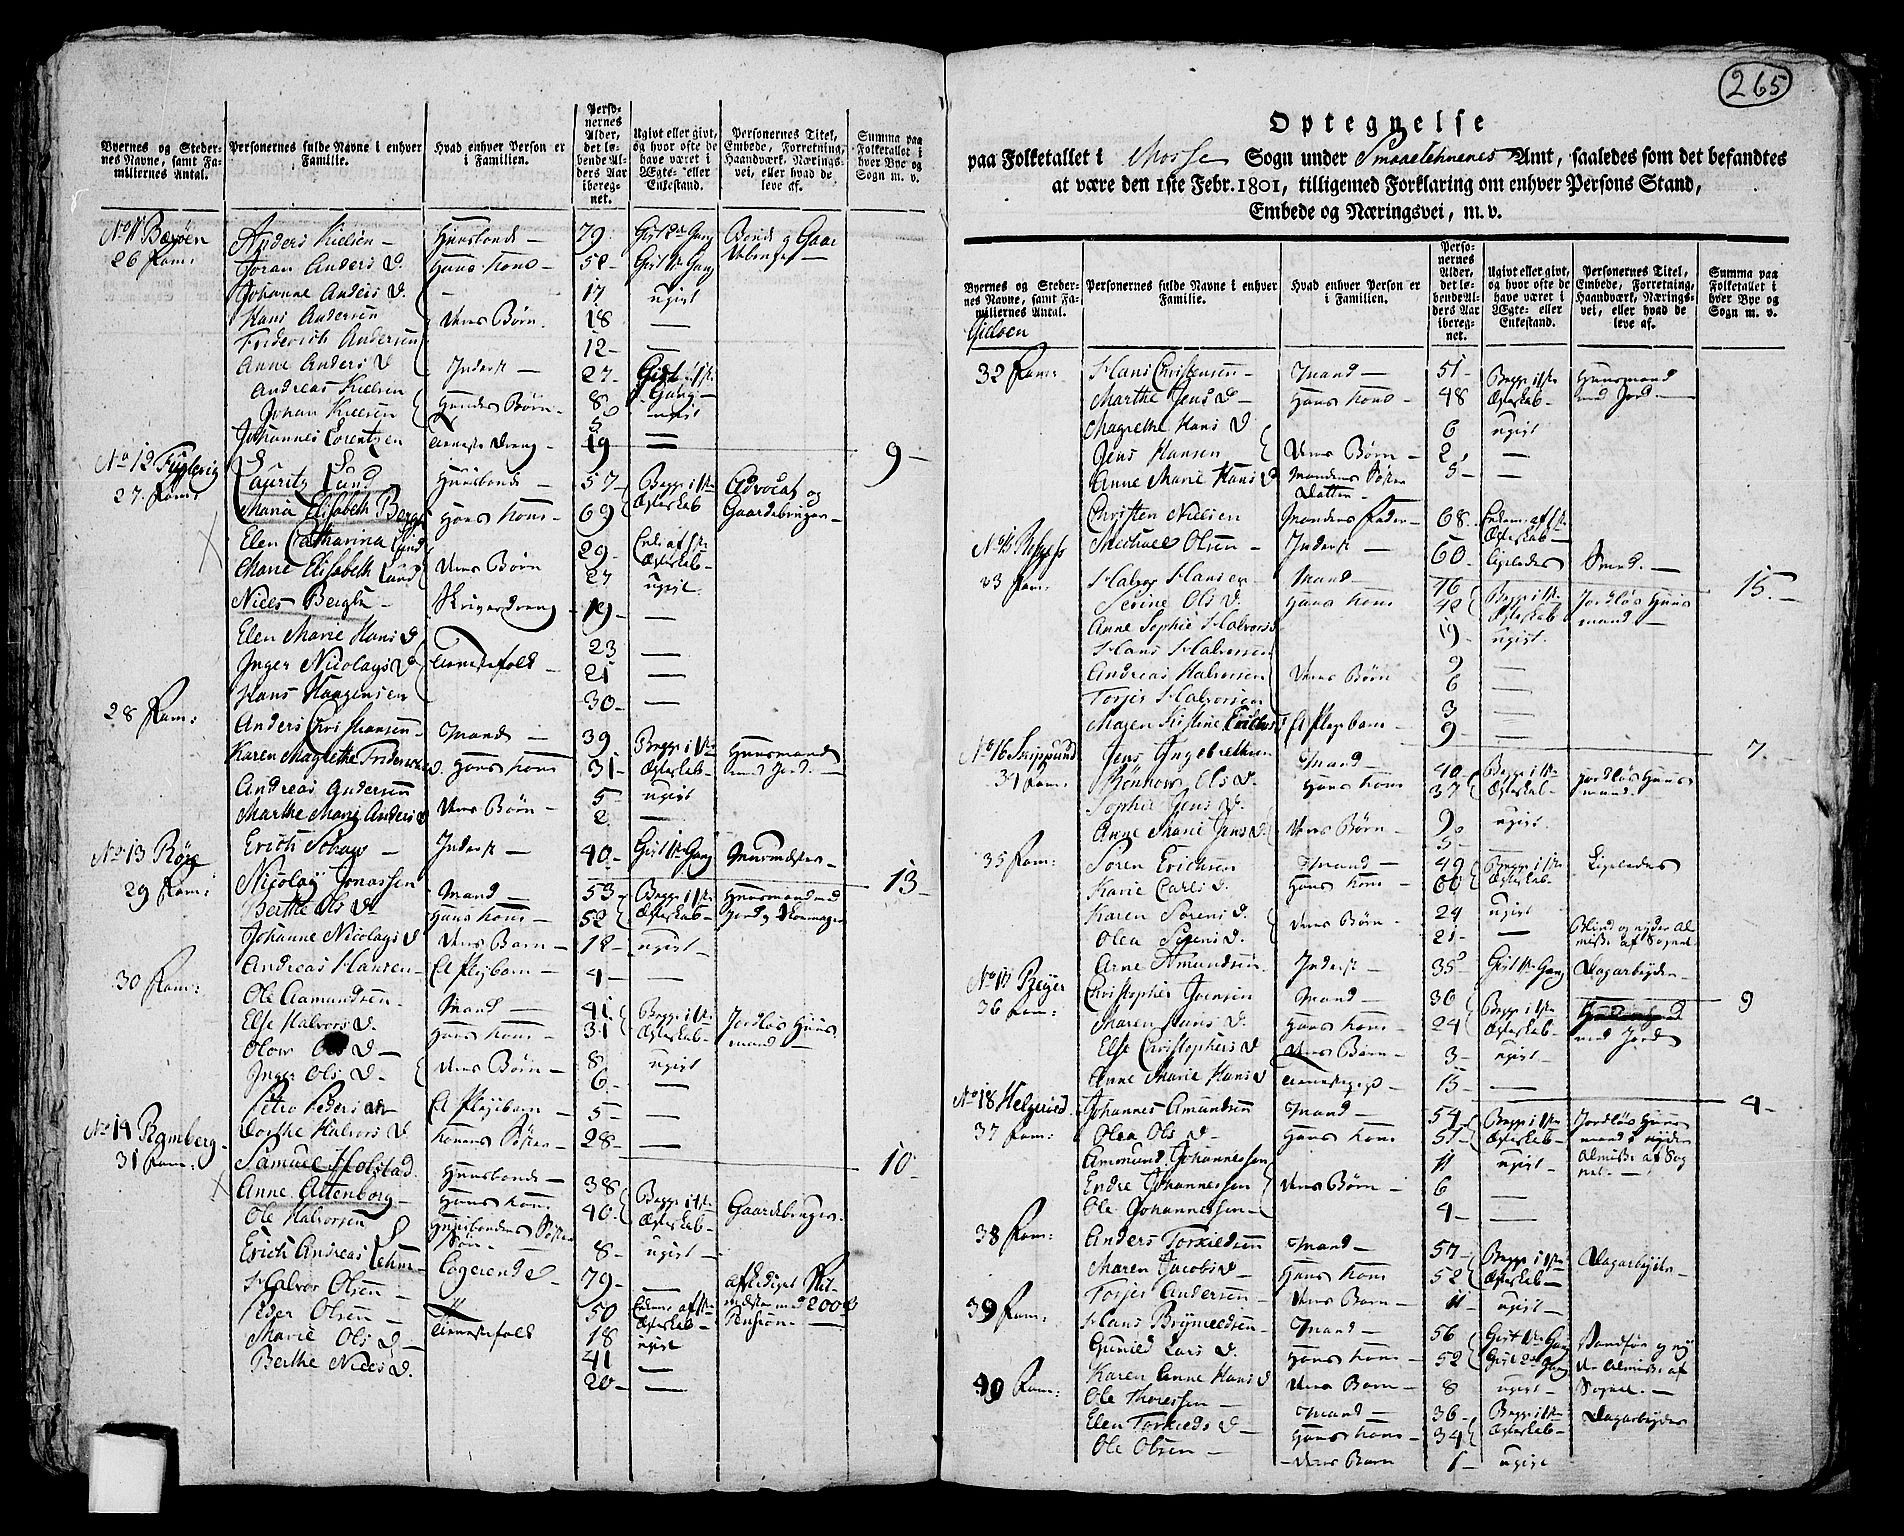 265
Byernes og Steder-
nes Navne, samt Fa-
milliernes Antal.
Personernes fulde Navne i enhver
Familie.
Hvad enhver Person er
i Familien.
Perso-
nernes
Alder,
det lø-
bende Al-
ders Aar
ibereg-
net.
Ugivt eller givt,
og hvor ofte de
have været i
Ægte- eller
Enkestand.
Personernes Titel,
Embede, Forretning,
Haandværk, Nærings-
vei, eller hvad de
leve af.
Summa paa
Folketallet i
hver Bye og
Sogn m. v.
No 11
26 Fam:
Anders Nielsen — Huusbonde — 79. Gift 2de Gang Bonde og Gaard
Joran Anders D. Hans Kone — 52 — Gift 1ste Gang
Johanne Anders D. 17 ugift
Hans Andersen Deres Børn. 18 —
Friderich Andersen 12 —
Anne Anders D Inderst — 27 — Gift 1ste
Andreas Nielsen Hendes Børn — 8 — Gang —
Johan Nielsen 5 ugift
Johannes Lorentzen Tieneste Dreng 19 — 9 —
No 12 Fuglevig
27. Fam:
Lauritz Lund Huusbonde — 57 — Begge i 1ste Advocat og
Maria Elisabeth Bergh Hans Kone — 69 Ægteskab Gaardebruger —
Elen Catharina Lund 29 — Enke af 1ste
Marie Elisabeth Lund Deres Børn 27 Ægteskab — ugift
Niels Bergh — Skriverdreng 19 —
Elen Marie Hans D 23 —
Inger Nicolays D Tienestefolk — 21 —
Hans Haagensen 30 —
28 Fam:
Anders Christiansen — Mand — 39 Begge i 1ste Huusmand
Karen Magrethe Friderichs D. Hans Kone 31 — Ægteskab — med Jord. —
Andreas Andersen 5 — ugift
Marthe Marie Anders D Deres Børn — 2 —
Erich — Inderst — 40 — Gift 1ste Gang — 13 —
No 13 Røre
29 Fam:
Nicolay Jonassen Mand — 53 Begge i 1ste Huusmand med
Berthe Ols D Hans Kone — 52 Ægteskab — Jord og Skomager
Johanne Nicolays D Deres Barn — 12 — ugift —
Andreas Hansen — Et Plejebarn — 4 —
30 Fam:
Ole Aamundsen — Mand — 41 Begge i 1ste Jordløs Huus
Else Halvors D. Hans Kone — 31 Ægteskab — mand —
Olow Ols D — 8 ugift
Inger Ols D. — Deres Børn — 6 —
Petro Peders D Et Plejebarn — 5 —
Dorthe Halvors D Konens Søster — 28 — 10
No 14 Ramberg —
31 Fam:
Samuel Holstad. Huusbonde — 38
Anne Altenborg — Hans Kone 40 Begge i 1ste Ægteskab — Gaardebruger —
Ole Halvorsen Huusbondens Søster Søn — 8 — ugift —
Erich Andreas Lehm Logerende — 79 — afskediget med 200 Pension —
Halvor Olsen — 50 Enkem: af 1ste
Peder Olsen — Tienestefolk 18 Ægteskab — ugift
Marie Ols D — 41 —
Berthe Niels D. 20 —
Optegnelse
paa Folketallet i Mosse Sogn under Smaalehnenes Amt, saaledes som det befandtes
at være den 1ste Febr. 1801, tilligemed Forklaring om enhver Persons Stand,
Embede og Næringsvei, m. v.
Byernes og Steder-
nes Navne, samt Fa-
milliernes Antal.
Personernes fulde Navne i enhver
Familie.
Hvad enhver Person er
i Familien.
Perso-
nernes
Alder,
det lø-
bende Al-
ders Aar
ibereg-
net.
Ugivt eller givt,
og hvor ofte de
have været i
Ægte- eller
Enkestand.
Personernes Titel,
Embede, Forretning,
Haandværk, Nærings-
vei, eller hvad de
leve af.
Summa paa
Folketallet i
hver Bye og
Sogn m. v.
32 Fam:
Hans Christensen — Mand — 51 — Begge i 1ste Huusmand
Marthe Jens D — Hans Kone — 48 Ægteskab — med Jord. —
Magrethe Hans D 6 ugift
Jens Hansen Deres Børn — 2 —
Anne Marie Hans D Mandens Søster Datter — 5 —
Christen Nielsen Mandens Fader — 68 — Enkem: af 1ste Ægteskab —
Michael Olsen — Inderst — 60 ligeledes Smed. — 15. —
33 Fam:
Halvor Hansen Mand — 46 Begge i 1ste Jordløs Huus
Serine Ols D. Hans Kone 42 Ægteskab mand —
Anne Sophie Halvors D 19 — ugift
Hans Halvorsen 9 —
Andreas Halvorsen Deres Børn 6 —
Torjes Halvorsen 3 —
Maren Kistine Et Plejebarn — 9 — 7 —
No 16
34 Fam:
Jens Ingebrethsen Mand — 40 Begge i 1ste Jordløs Huus
Ols D. Hans Kone 37 Ægteskab — mand.
Sophie Jens D. 9 ugift
Anne Marie Jens D Deres Børn — 5 —
35 Fam:
Soren Erichsen — Mand — 49 Begge i 1ste Ligeledes
Karie Carls D. Hans Kone — 60 Ægteskab —
Karen Sorens D. 24 ugift
Olea Sorens D. Deres Børn — 21 — Blind og nyder Al-
misse af Sognet
Arne Amundsen Inderst — 35 Gift 1ste Gang Dagarbeyder — 9
No 17 Reyer
36 Fam:
Christopher Joensen Mand — 36 Begge i 1ste
Maren Hans D. Hans Kone — 24 Ægteskab — med Jord
Else Christophers D Deres Børn — 3 — ugift —
Anne Marie Hans D Tienestepige — 15 — 4 —
No 18
37 Fam:
Johannes Amundsen Mand — 54 Begge i 1ste Jordløs Huus
Olea Ols D — Hans Kone 51 Ægteskab — mand og nyder
Ammund Johannessen 11 ugift Almisse af Sog
Endre Johannessen Deres Børn — 6 — net —
Ole Johannessen — 4 —
38 Fam:
Anders Torkieldsen Mand — 57 Begge i 1ste Dagarbeyder —
Maren Jacobs D — Hans Kone 52 Ægteskab —
Torjes Andersen — Deres Barn — 11 — ugift —
39 Fam:
Hans Brynieldsen — Mand — 56 Gift 1ste Gang Vanfør og ny
Gunild Lars D. Hans Kone — 52 Gift 2den Gang der Almisse af
Karen Anne Hans D Deres Barn — 8 ugift — Sognet —
40 Fam:
Ole Thoresen — Mand — 36 — Begge i 1ste Dagarbeyder
Elen Torkieds D — Hans Kone — 34 Ægteskab —
Ole Olsen — Deres Barn 1 — ugift